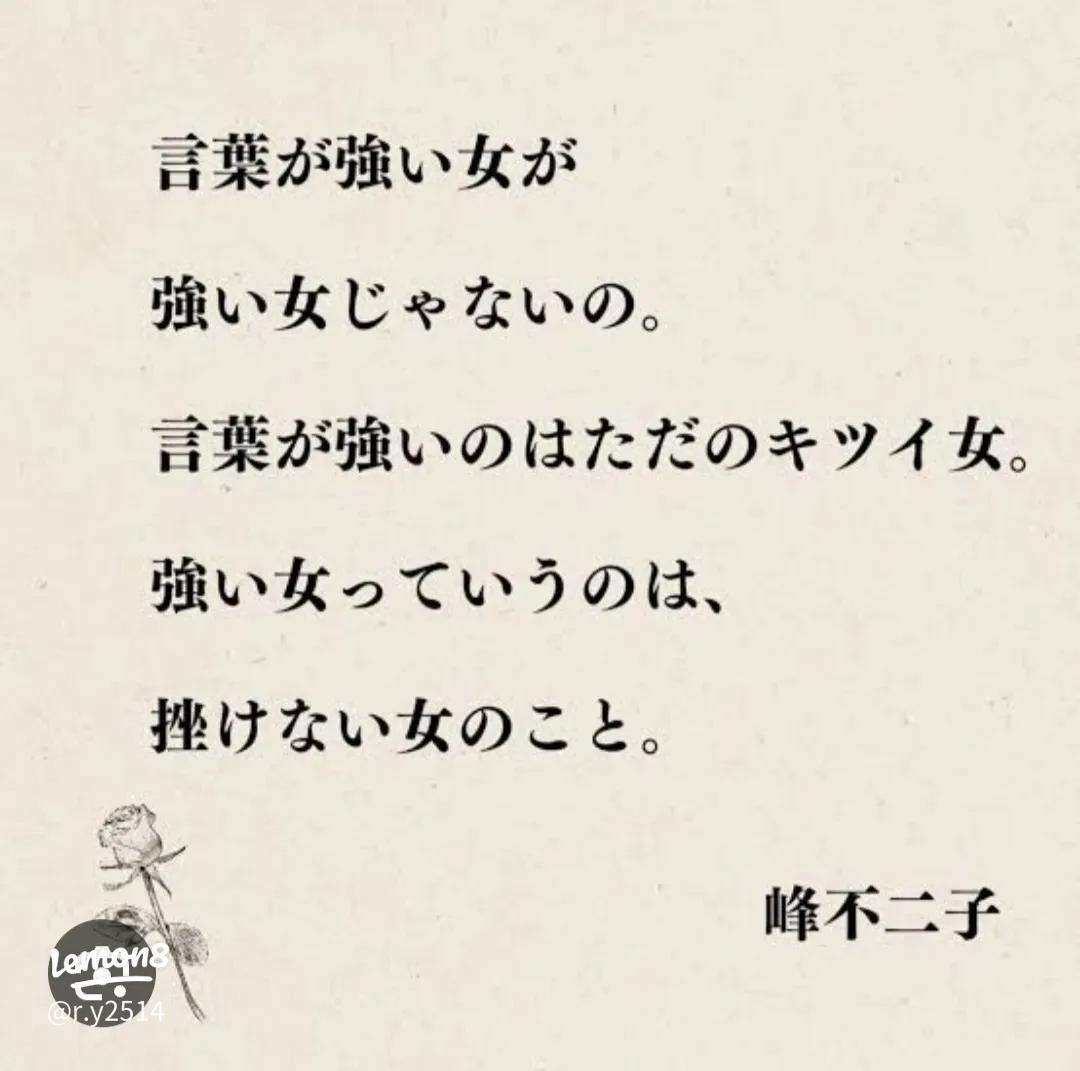 言葉が強い女が
強い女じゃないの。
言葉が強いのはただのキツイ女。
強い女っていうのは、
挫けない女のこと。
峰不二子
lemon8
@r.y2514